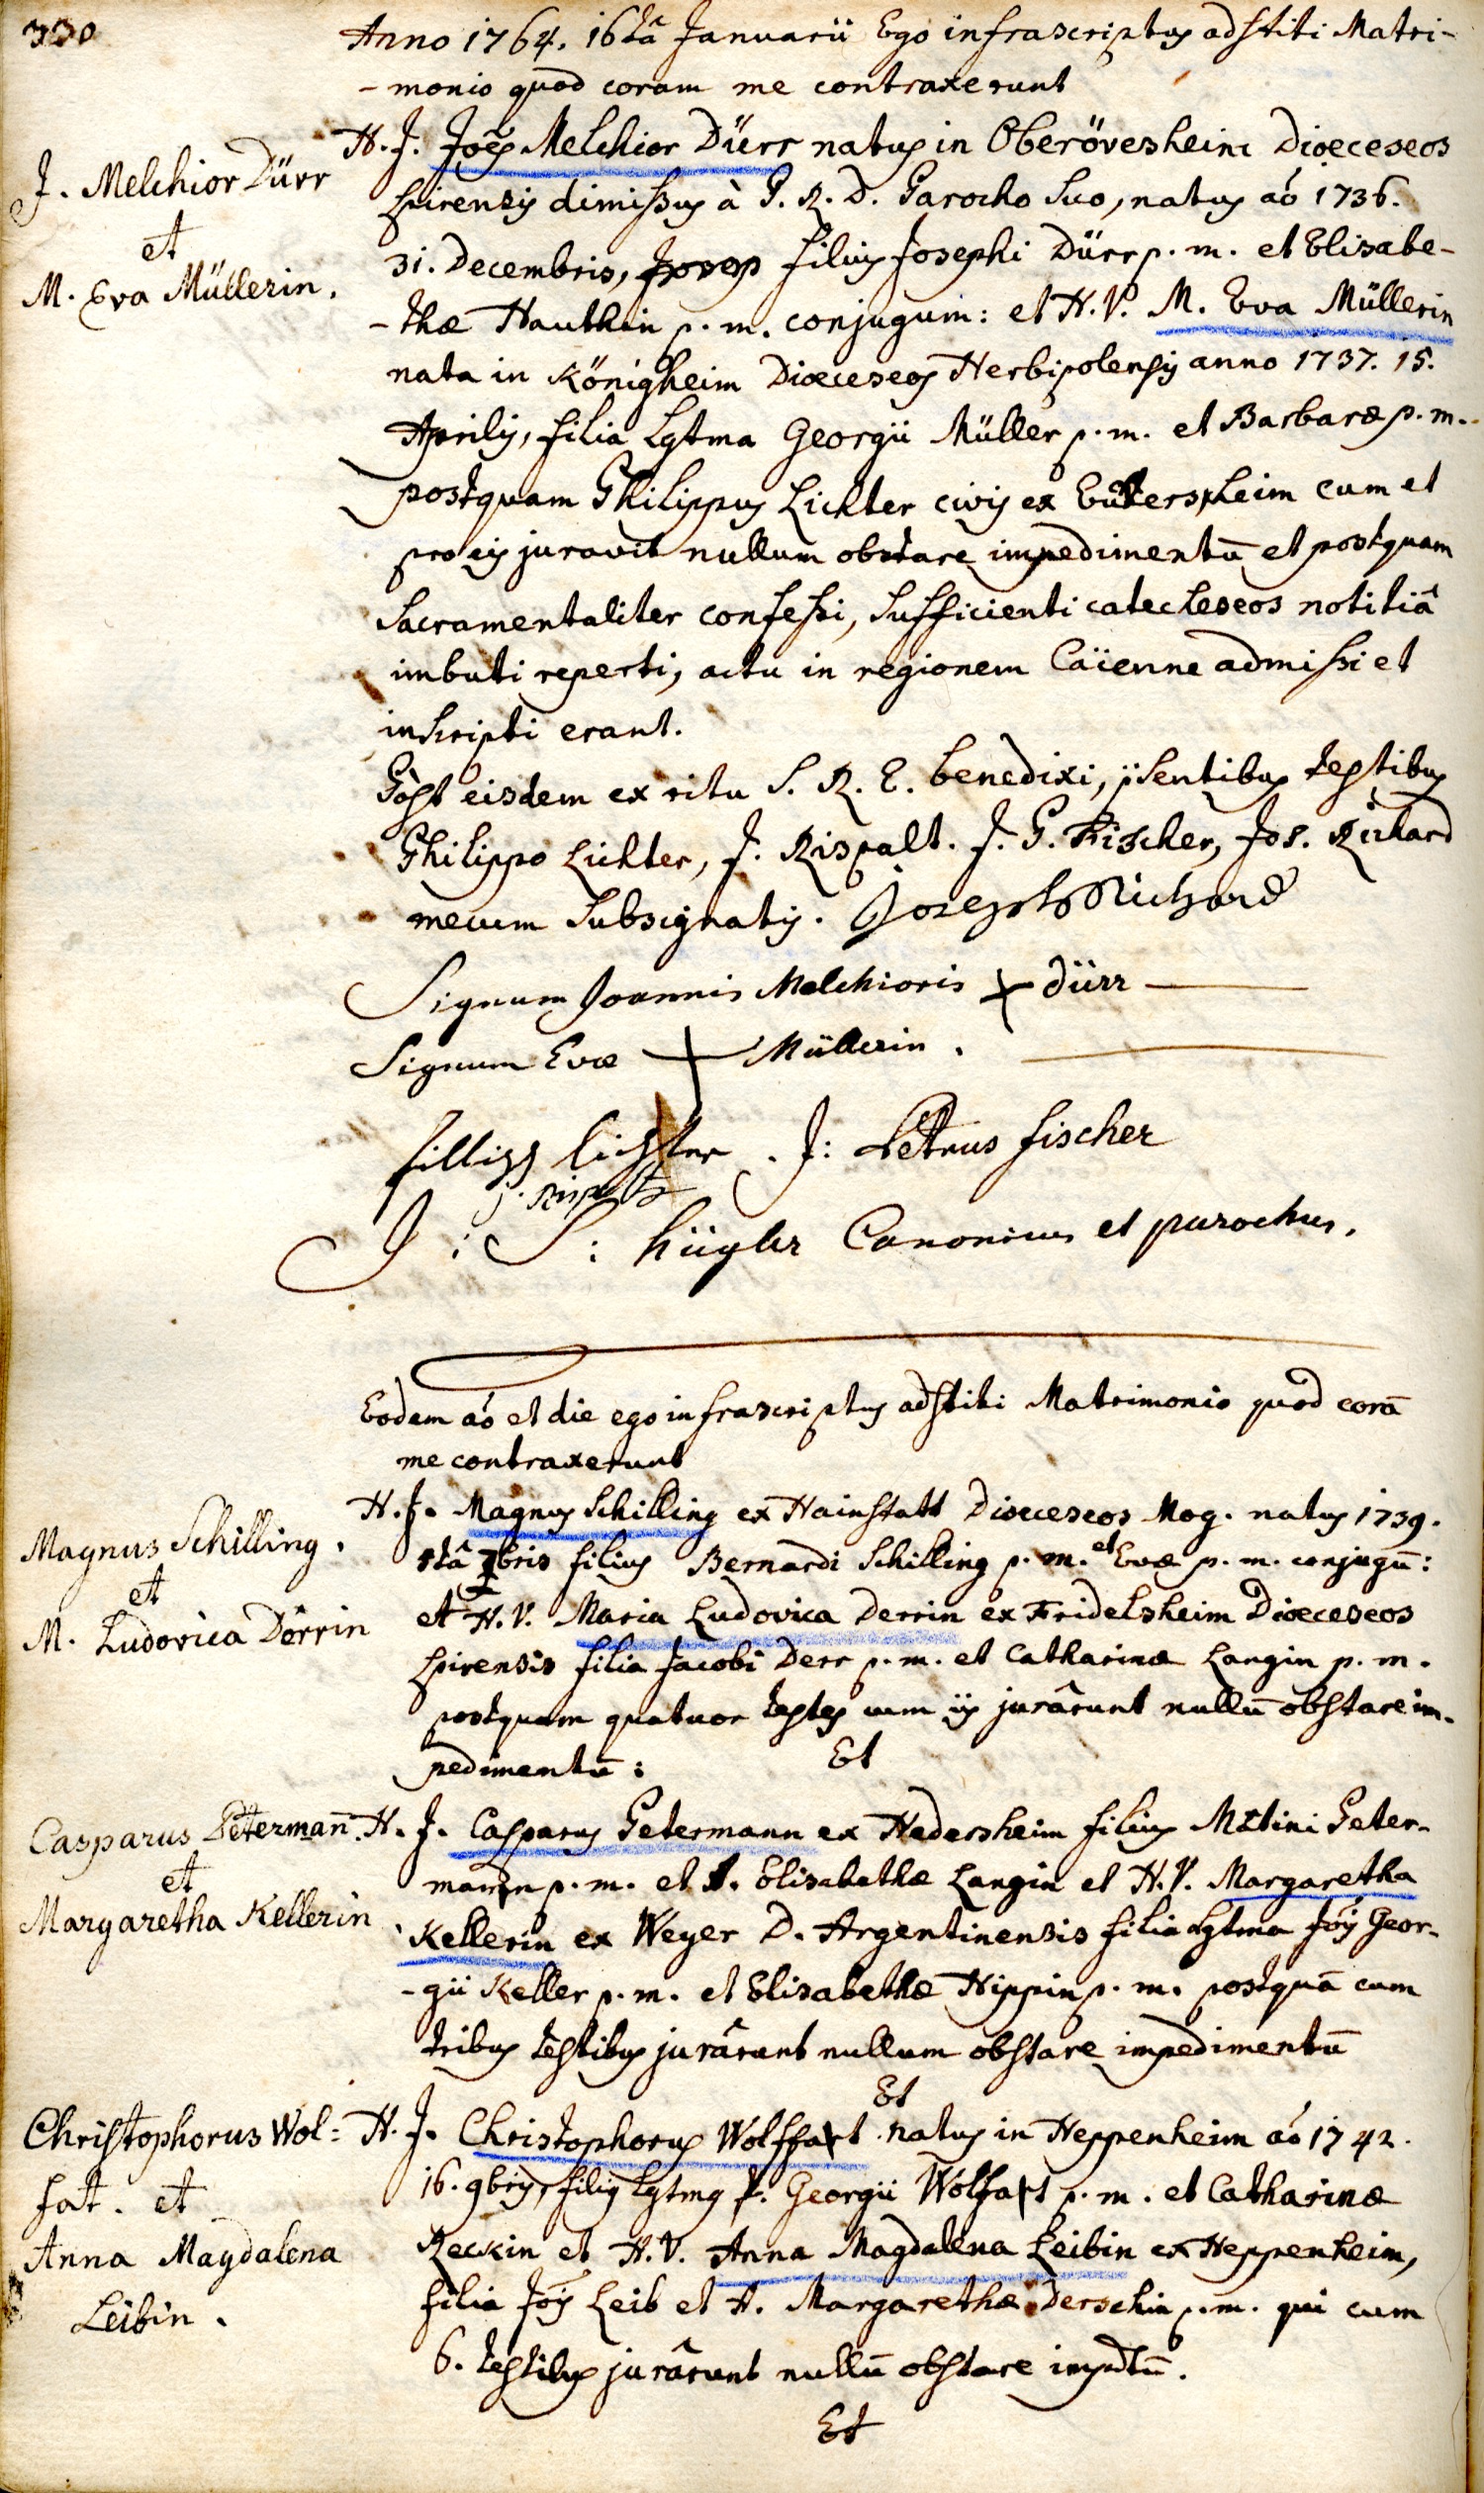 330
Anno 1764. 16tâ Januarii Ego infrascriptus adstiti Matri-
- monio quod coram me contraxerunt
J. Melchior Dürr
et
M. Eva Müllerin.
H. J. Joēs Melchior Dürr natus in Oberövesheim Dioeceseos
Spirensis dimissus à P. R. D. Parocho Suo, natus aó 1736.
31. Decembris, filius Josephi Dürr p. m. et Elisabe-
- thæ Hauthin p. m. conjugum: et H. V. M. Eva Müllerin
nata in Königheim Dioeceseos Herbipolensis anno 1737. 15.
Aprilis, filia Lgtma Georgii Müller p. m. et Barbaræ p. m.
postquam Philippus Lichter civis ex cum et
pro iis juravit nullum obstare impedimentū et postquam
Sacramentaliter confessi, Sufficienti catecheseos notitiâ
imbuti reperti, actu in regionem Caïenne admissi et
inscripti erant.
Póst eisdem ex ritu S. R. E. benedixi, p̄sentibus testibus
Philippo Lichter, J. Rispalt. J. P. Fischer, Jos. Richard
mecum Subsignatis. Joseph Richard
Signum Joannis Melchioris + dürr
Signum Evæ + Müllerin.
fillips lichter. J: Petrus fischer
j. Rispalt
J: S: hügler Canonicus et parochus.
Eodem aó et die ego infrascriptus adstiti Matrimonio quod corā
me contraxerunt
Magnus Schilling.
et
M. Ludovica Dörrin
H. J. Magnus Schilling ex Hainstatt Dioeceseos Mog. natus 1739.
5tâ bris filius Bernardi Schilling p. m. et Evæ p. m. conjugū:
et H. V. Maria Ludovica Derrin ex Fridelsheim Dioeceseos
Spirensis filia Jacobi Derr p. m. et Catharinæ Langin p. m.
postquam quatuor testes cum iis jurârunt nullū obstare im-
pedimentū: Et
Casparus Peterman̄.
et
Margaretha Kellerin
H. J. Casparus Petermann ex Hedersheim filius Mtini Peter-
mann p. m. et A. Elisabethæ Langin et H. V. Margaretha
Kellerin ex Weyer D. Argentinensis filia Lgtma Jōis Geor-
- gii Keller p. m. et Elisabethæ Hippin p. m. postquā cum
tribus testibus jurârunt nullum obstare impedimentū
Et
Christophorus Wol=
fat. et
Anna Magdalena
Leibin.
H. J. Christophorus Wolffart natus in Heppenheim aó 1742.
16. 9bris, filius Lgtmus Georgii Wolfart p. m. et Catharinæ
Reckin et H. V. Anna Magdalena Leibin ex Heppenheim,
filia Jōis Leib et A. Margarethæ Derschin p. m. qui cum
6. testibus jurârunt nullū obstare impdtū.
Et